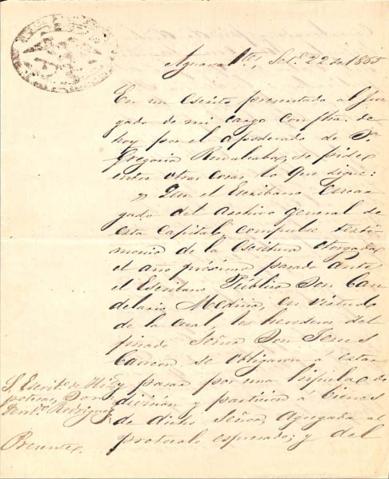 Setᵉ 22 de 1855
En un escrito presentado al juz
gado de mi cargo con fha. de
hoy por el apoderado de D.
Gregorio se pide,
entre otras cosas, lo que sigue:
"Que el Escribano Encar
gado del archivo general de
esta Capital, compulse testi
monio de la escritura otorgada
el año próximo pasado ante
el Escribano Público Don Can
delario Medina, en virtud
de la cual, los herederos del
finado Señor Don Jesus
Carreon se obligaron á estar
y pasar por una
división y partición de bienes
de dicho Señor, agregada al
protocolo espresado; y del
S. Escribº de Hi
potecas, Don
Rodriguez
Presente.